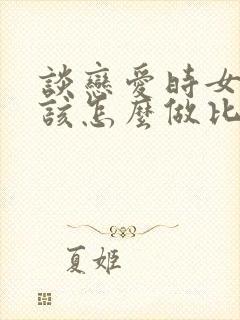 談戀愛時女
該怎麼做比
夏姬